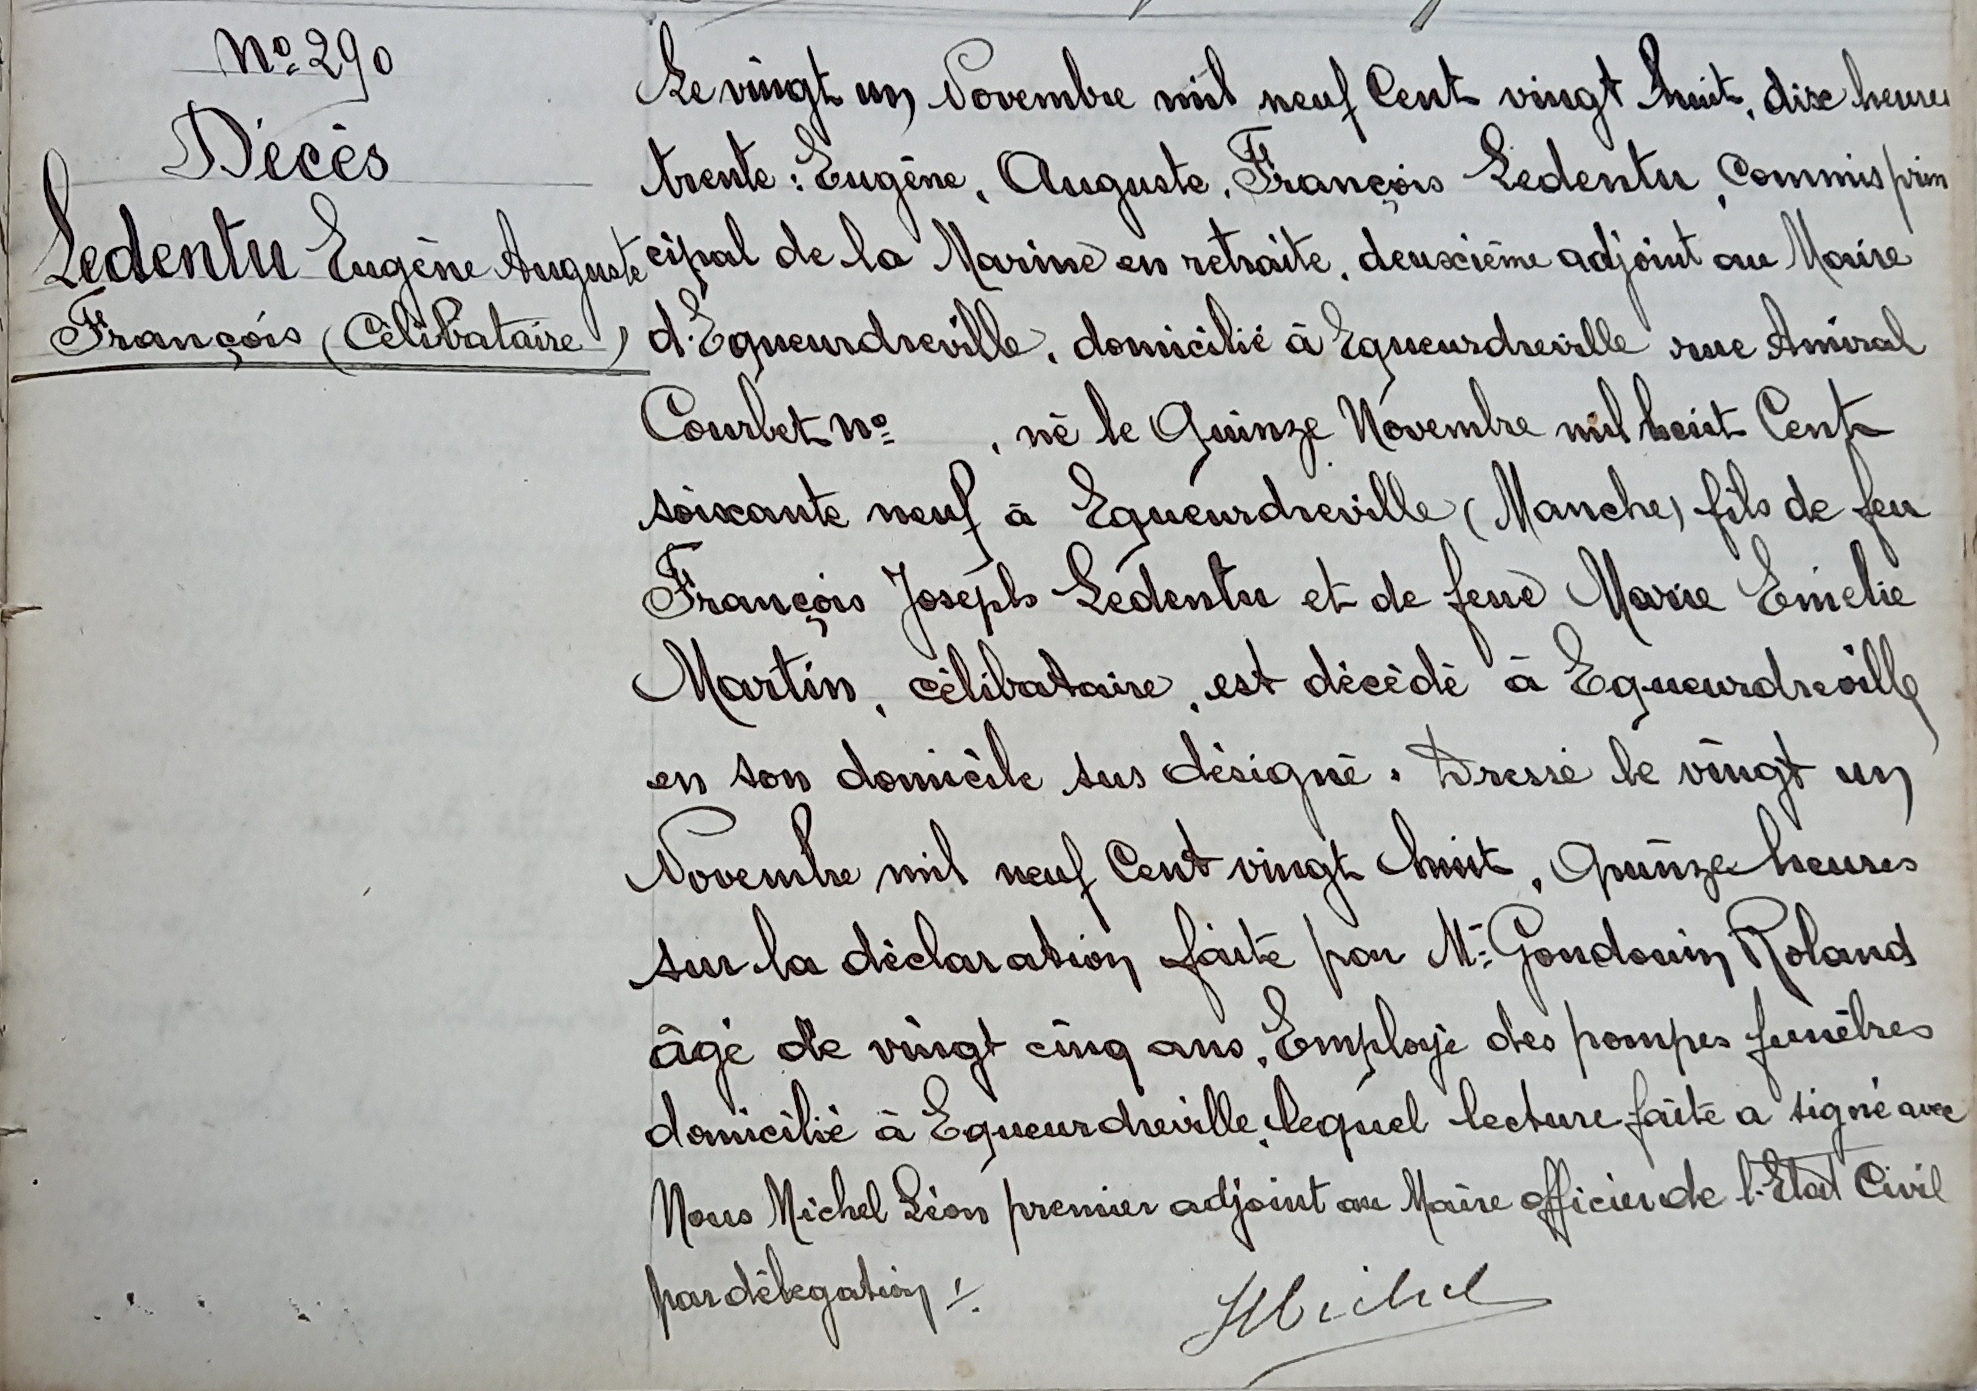 No. 290
Décès
Ledentu Eugène Auguste
François (Célibataire)
Le vingt un Novembre mil neuf Cent vingt huit, dix heures
trente : Eugène, Auguste, François Ledentu, Commis prin
cipal de la Marine en retraite, deuxième adjoint au Maire
d'Equeurdreville, domicilié à Equeurdreville rue Amiral
Courbet No , né le Quinze Novembre mil huit Cent
soixante neuf à Equeurdreville (Manche) fils de feu
François Joseph Ledentu et de feue Marie Emélie
Martin, célibataire, est décédé à Equeurdreville
en son domicile sus désigné. Dressé le vingt un
Novembre mil neuf Cent vingt huit, Quinze heures
sur la déclaration faite par Mr. Goudouin Roland
âgé de vingt cinq ans, Employé des pompes funèbres
domicilié à Equeurdreville, lequel lecture faite a signé avec
Nous Michel Léon premier adjoint au Maire officier de l'Etat Civil
par délégation ./.
LMichel